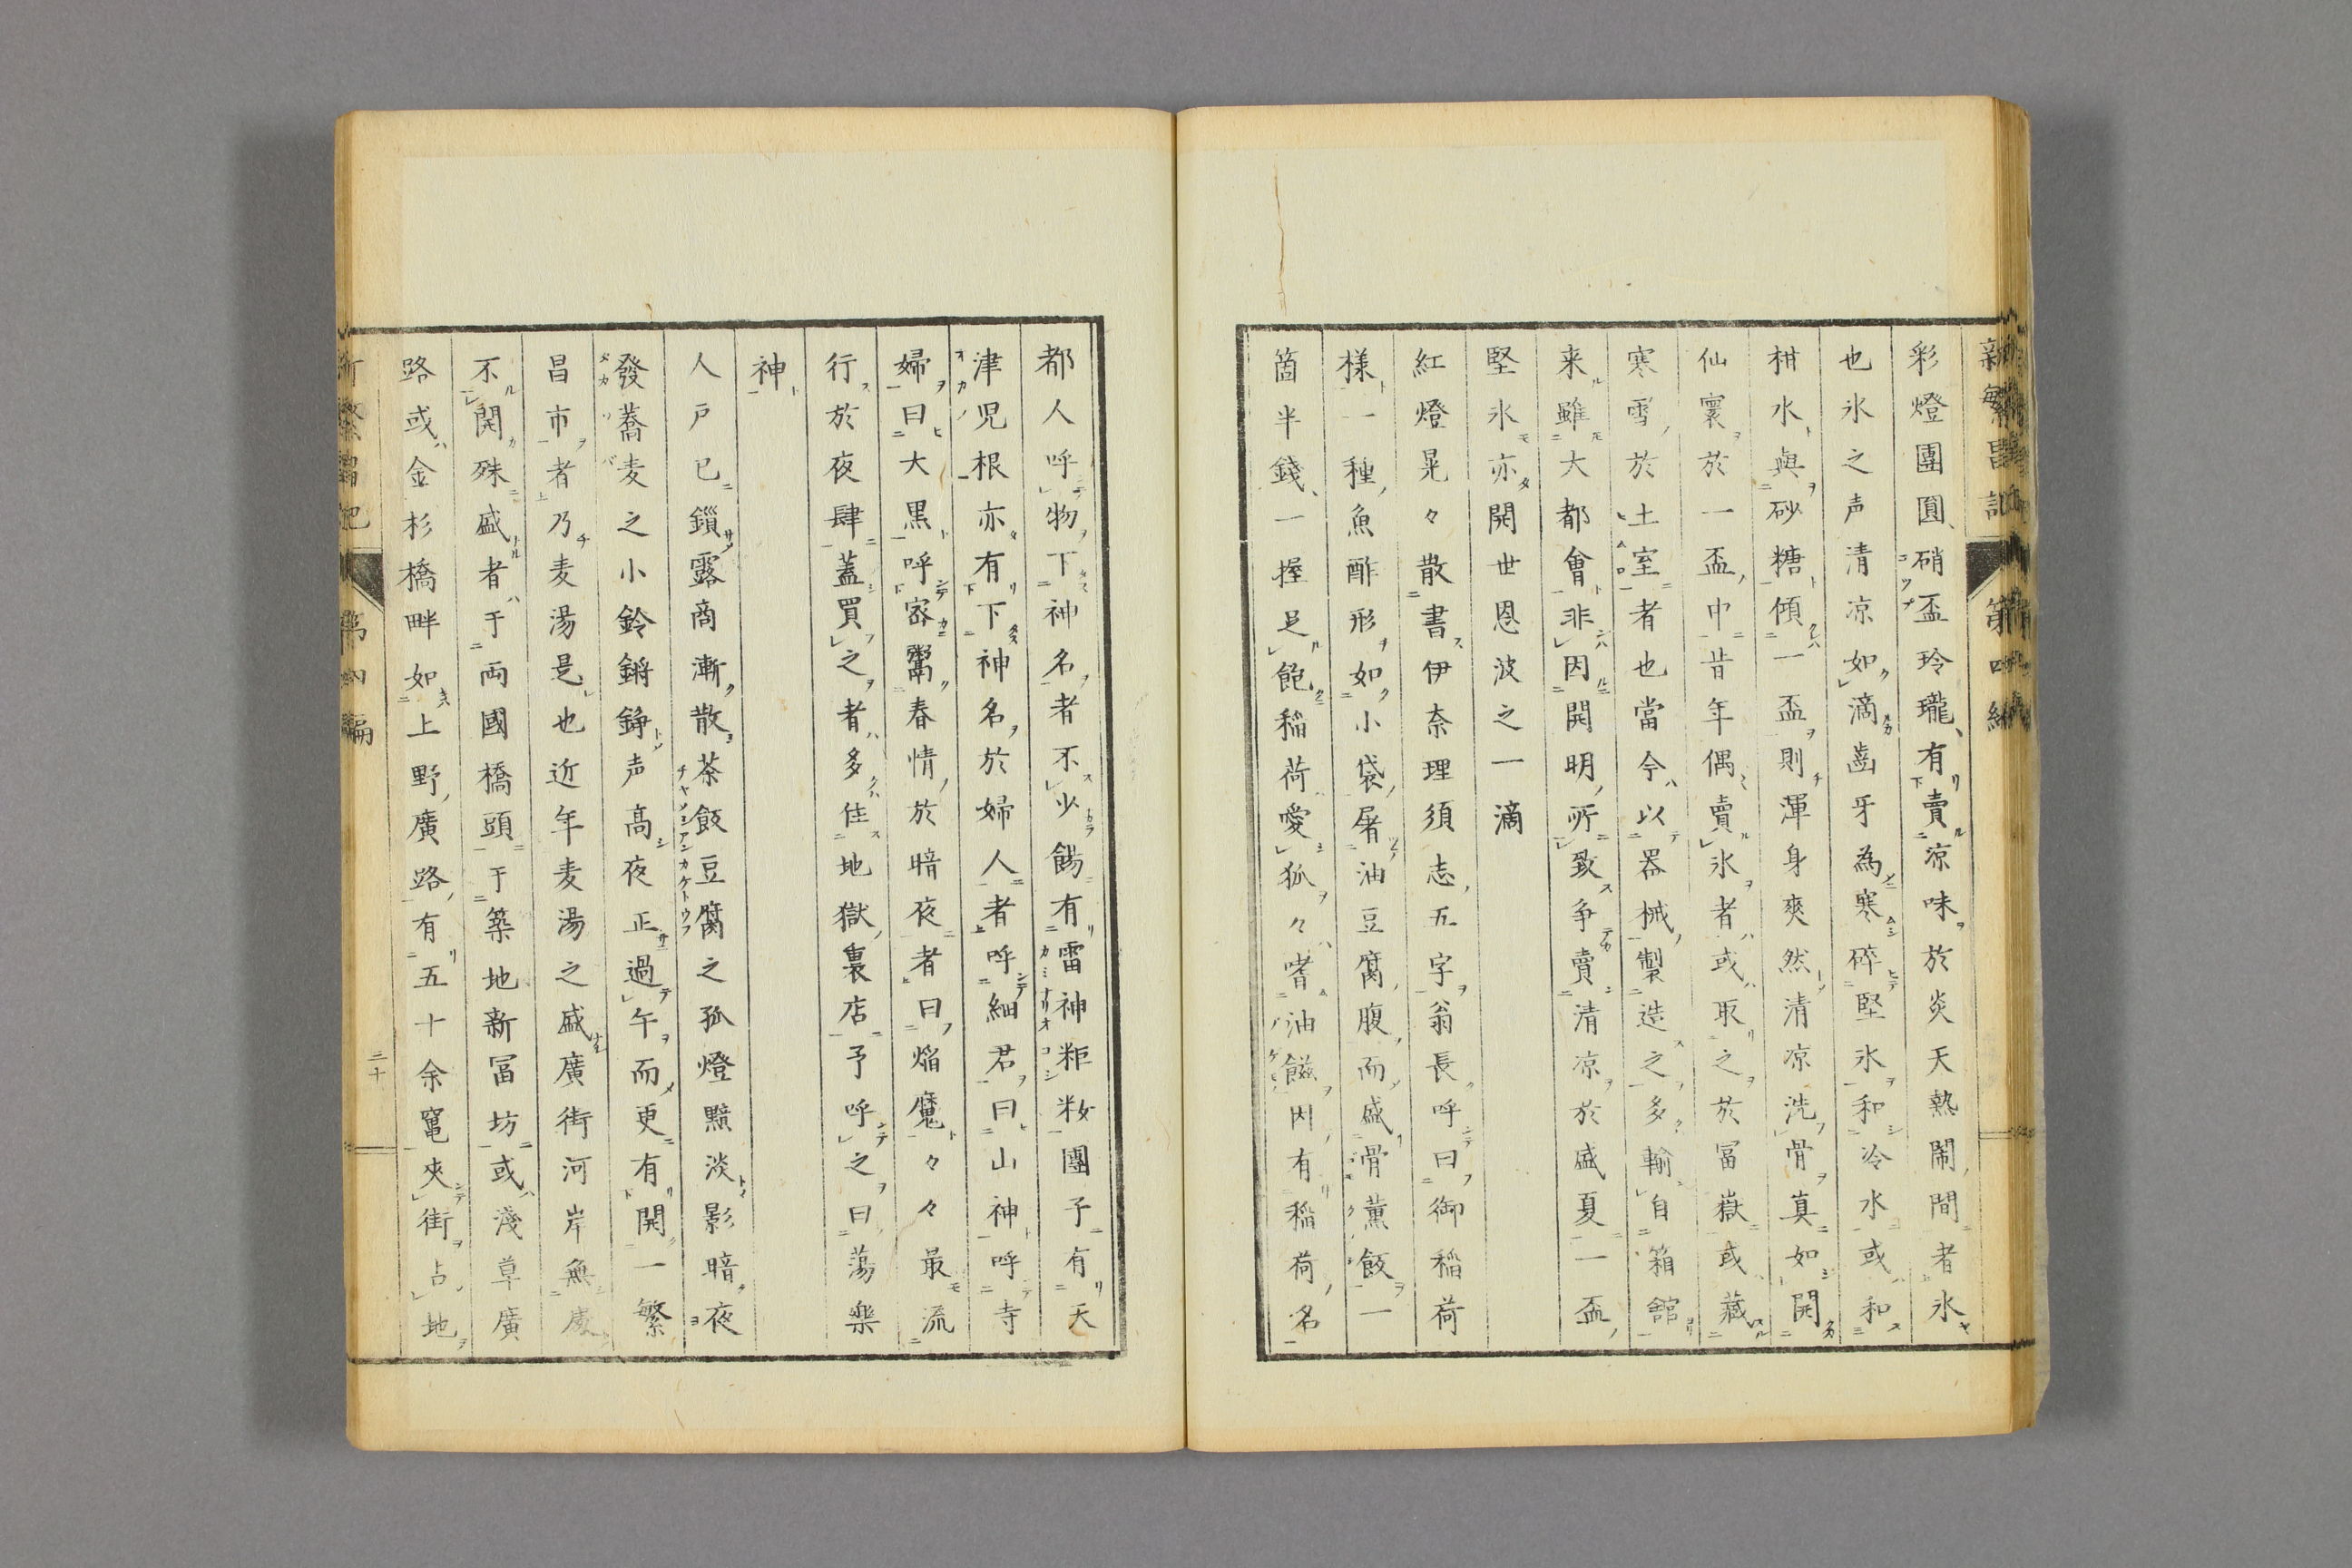 彩燈團圓硝盃玲瓏有賣涼味於炎天熱鬧間者氷
也氷之声清涼如滴齒牙為寒碎堅氷和冷水或和
柑水與砂糖傾一盃則渾身爽然清涼洗骨真如開
仙寰於一盃中昔年偶賣氷者或取之於冨嶽或藏
寒雪於土室者也當今以器械製造之多輸自箱舘
来雖大都會非因開明所致争賣清涼於盛夏一盃
堅氷亦開世恩波之一滴
紅燈晃々散書伊奈理須志五字翁長呼曰御稲荷
様一種魚酢形如小袋屠油豆腐腹而盛骨董飯一
箇半錢一握足飽稲荷愛狐々嗜油餻因有稲荷名
都人呼物下神名者不少餳有雷神粔籹團子有天
津児根亦有下神名於婦人者呼細君曰山神呼寺
婦曰大黒呼密鬻春情於暗夜者曰焔魔々々最流
行於夜肆蓋買之者多住地獄裏店予呼之曰蕩楽
神
人戸已鎻露商漸散茶飯豆腐之孤燈黯淡影暗夜
發蕎麦之小鈴鏘錚声高夜正過午而更有開一繁
昌市者乃麦湯是也近年麦湯之盛廣街河岸無處
不開殊盛者于両國橋頭于築地新冨坊或淺草廣
路或金杉橋畔如上野廣路有五十余竃夾街占地
新繁昌記
第四編
二十